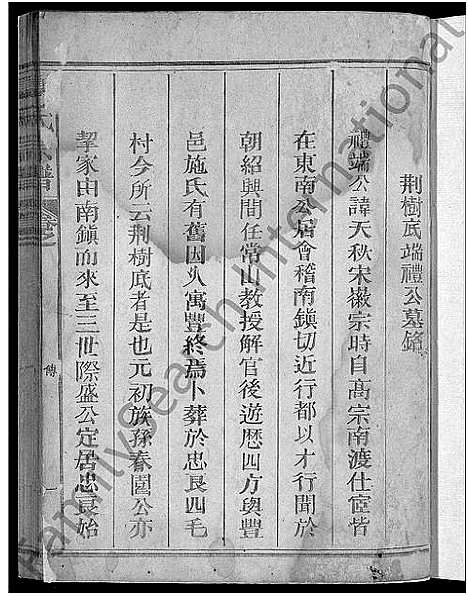 荆樹底端禮公墓銘
禮端公諱天秋宋徽宗時自高宗南渡仕宦皆
在東南公居會稽南鎮切近行都以才行聞於
朝紹興間任常山教授解官後遊歷四方與豐
邑施氏有舊因久寓豐終焉卜葬於忠良四毛
村今所云荆樹底者是也元初族孫春園公亦
挈家由南鎮而來至三世際盛公定居忠良始
傳
一
FamilySearch International